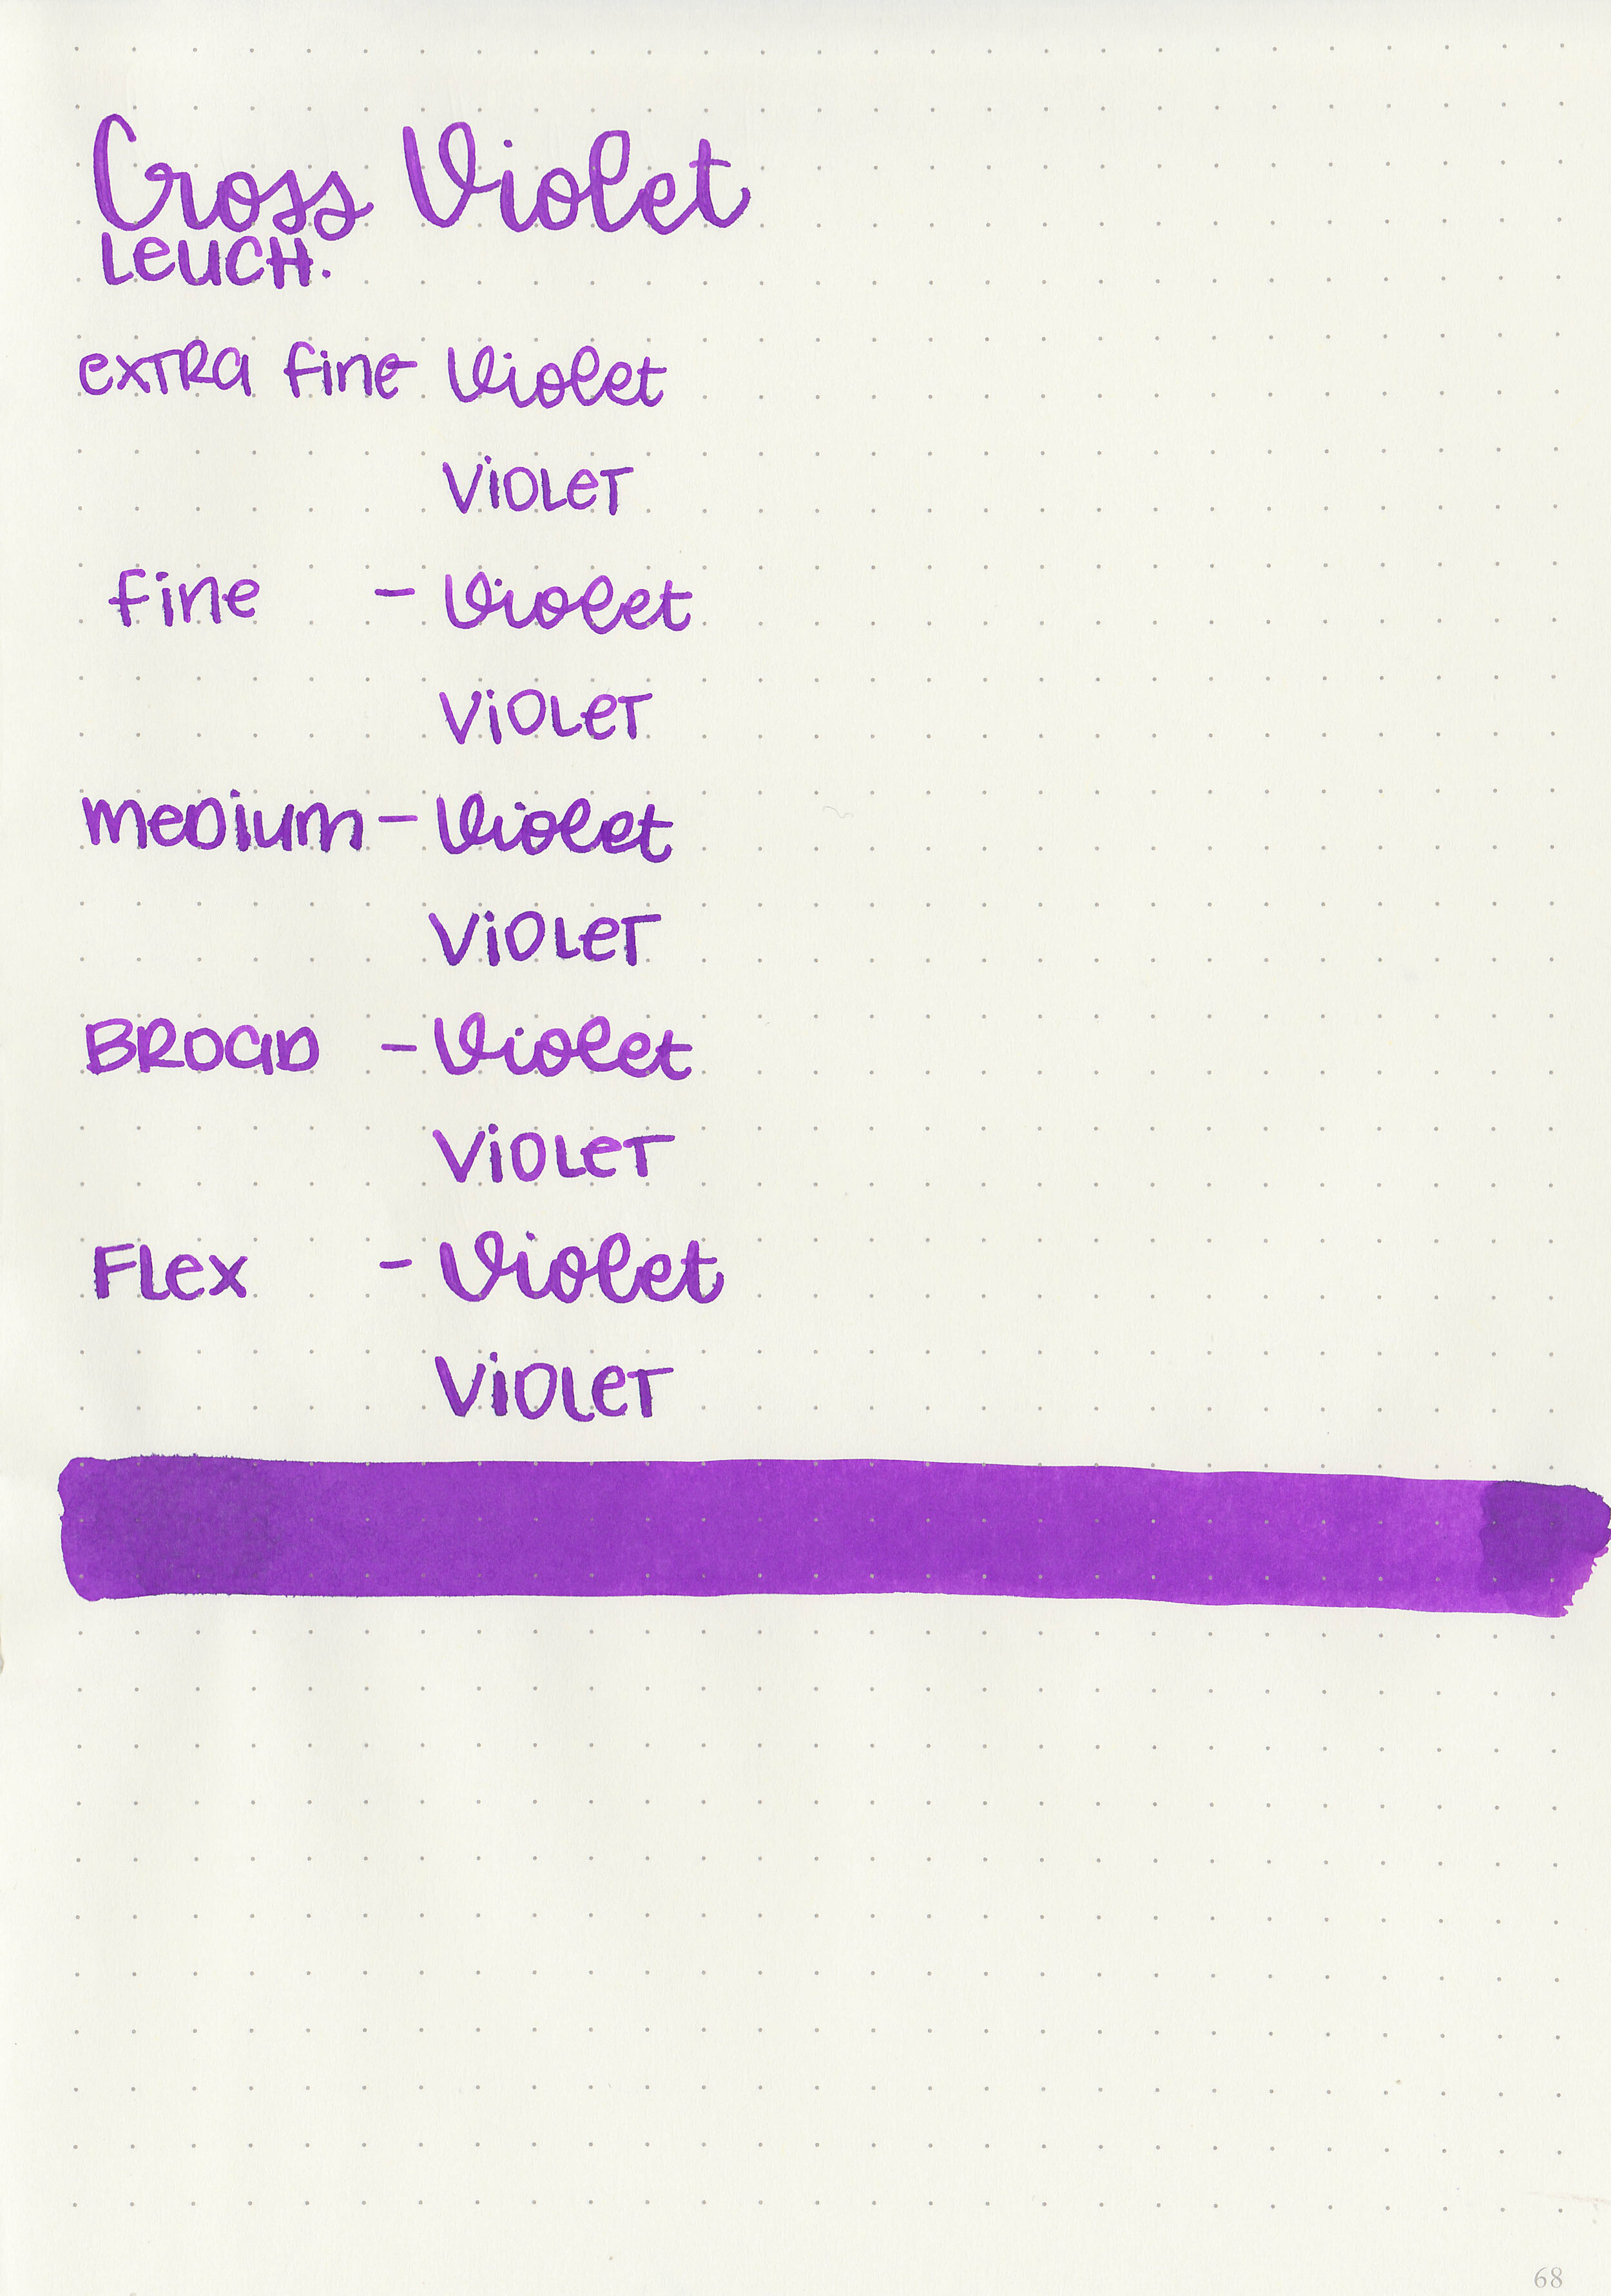 Cross Violet
Leuch.
extra fine - Violet
Violet
fine - Violet
Violet
medium - Violet
Violet
Broad - Violet
Violet
Flex - Violet
Violet
68